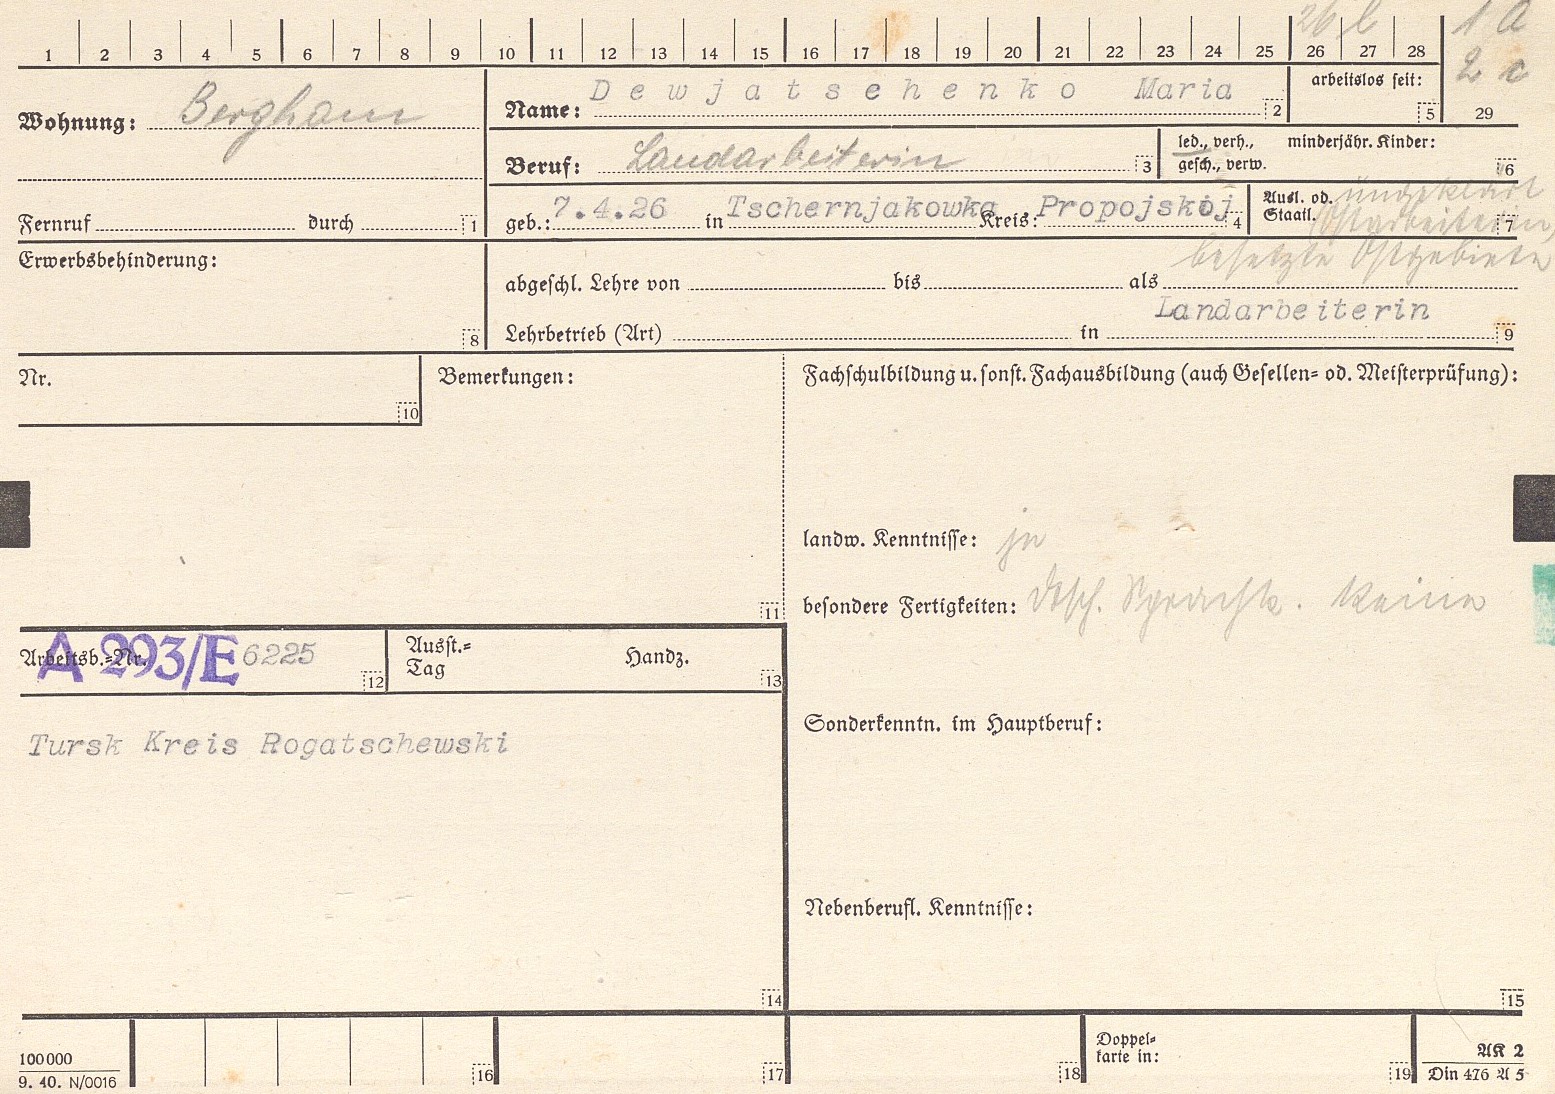 26 b
1 a
1 2 3 4 5 6 7 8 9 10 11 12 13 14 15 16 17 18 19 20 21 22 23 24 25 26 27 28
2 c
29
Wohnung: Bergham
Name: Dewjatschenko Maria 2
arbeitslos seit: 5
Beruf: Landarbeiterin 3
led., verh., gesch., verw.
minderjähr. Kinder: 6
Fernruf durch 1
geb.: 7.4.26 in Tschernjakowka Kreis: Propojskij 4
Ausl. od. Staatl. ungeklärt 7
Ostarbeiterin,
besetzte Ostgebiete
Erwerbsbehinderung: 8
abgeschl. Lehre von bis als
Landarbeiterin
Lehrbetrieb (Art) in 9
Nr. 10
Bemerkungen: 11
Fachschulbildung u. sonst. Fachausbildung (auch Gesellen- od. Meisterprüfung):
landw. Kenntnisse: ja
besondere Fertigkeiten: dtsch. Sprachk. keine
Arbeitsb.-Nr. A 293/E 6225 12
Ausst.-Tag Handz. 13
Tursk Kreis Rogatschewski
14
Sonderkenntn. im Hauptberuf:
Nebenberufl. Kenntnisse:
15
100000
9. 40. N/0016
16
17
18
Doppel-
karte in:
19
AK 2
Din 476 A 5